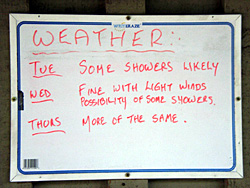 WEATHER:
TUE SOME SHOWERS LIKELY
WED FINE WITH LIGHT WINDS
POSSIBILITY OF SOME SHOWERS.
THURS MORE OF THE SAME.